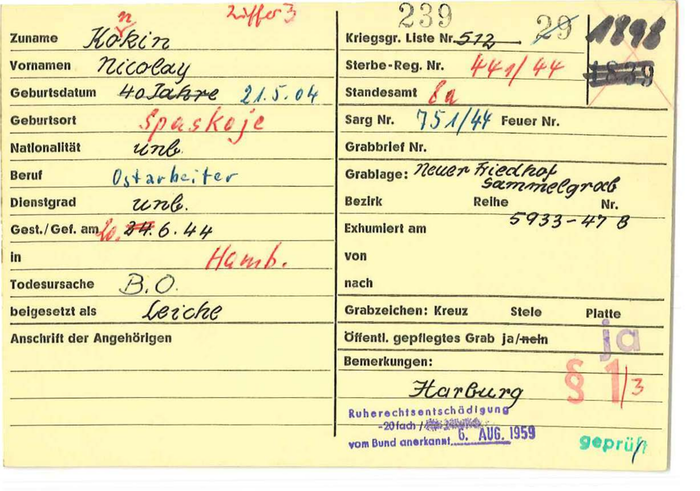 Ziffer 3 239 29 1898
n
Zuname Kokin Kriegsgr. Liste Nr. 512
Vornamen Nicolay Sterbe-Reg. Nr. 441/44 1839
Geburtsdatum 40 Jahre 21.5.04 Standesamt 8a
Geburtsort Spaskoje Sarg Nr. 751/44 Feuer Nr.
Nationalität unb. Grabbrief Nr.
Beruf Ostarbeiter Grablage: Neuer Friedhof
Sammelgrab
Dienstgrad unb. Bezirk Reihe Nr.
5933-47 B
Gest./Gef. am 20. 24.6.44 Exhumiert am
in Hamb. von
Todesursache B.O. nach
beigesetzt als Leiche Grabzeichen: Kreuz Stele Platte
Anschrift der Angehörigen Öffentl. gepflegtes Grab ja/nein ja
Bemerkungen: § 1/3
Harburg
Ruherechtsentschädigung
-20fach /
vom Bund anerkannt 6. AUG. 1959 geprüft